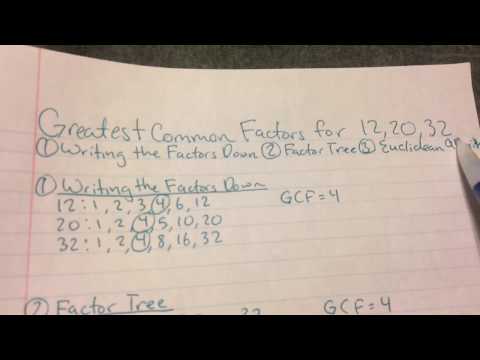 Greatest Common Factors for 12, 20, 32
① Writing the Factors Down ② Factor Tree ③ Euclidean
① Writing the Factors Down
12: 1, 2, 3, 4, 6, 12 GCF = 4
20: 1, 2, 4, 5, 10, 20
32: 1, 2, 4, 8, 16, 32
② Factor Tree GCF = 4